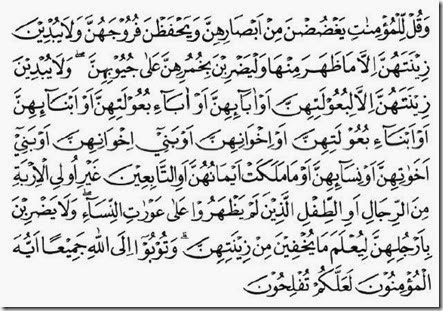 وَقُلْ لِّلْمُؤْمِنٰتِ يَغْضُضْنَ مِنْ اَبْصَارِهِنَّ وَيَحْفَظْنَ فُرُوْجَهُنَّ وَلَا يُبْدِيْنَ
زِيْنَتَهُنَّ اِلَّا مَا ظَهَرَ مِنْهَا وَلْيَضْرِبْنَ بِخُمُرِهِنَّ عَلٰى جُيُوْبِهِنَّ ۖ وَلَا يُبْدِيْنَ
زِيْنَتَهُنَّ اِلَّا لِبُعُوْلَتِهِنَّ اَوْ اٰبَاۤىِٕهِنَّ اَوْ اٰبَاۤءِ بُعُوْلَتِهِنَّ اَوْ اَبْنَاۤىِٕهِنَّ
اَوْ اَبْنَاۤءِ بُعُوْلَتِهِنَّ اَوْ اِخْوَانِهِنَّ اَوْ بَنِيْٓ اِخْوَانِهِنَّ اَوْ بَنِيْٓ
اَخَوٰتِهِنَّ اَوْ نِسَاۤىِٕهِنَّ اَوْ مَا مَلَكَتْ اَيْمَانُهُنَّ اَوِ التَّابِعِيْنَ غَيْرِ اُولِى الْاِرْبَةِ
مِنَ الرِّجَالِ اَوِ الطِّفْلِ الَّذِيْنَ لَمْ يَظْهَرُوْا عَلٰى عَوْرٰتِ النِّسَاۤءِ ۖ وَلَا يَضْرِبْنَ
بِاَرْجُلِهِنَّ لِيُعْلَمَ مَا يُخْفِيْنَ مِنْ زِيْنَتِهِنَّ ۗ وَتُوْبُوْٓا اِلَى اللّٰهِ جَمِيْعًا اَيُّهَ
الْمُؤْمِنُوْنَ لَعَلَّكُمْ تُفْلِحُوْنَ